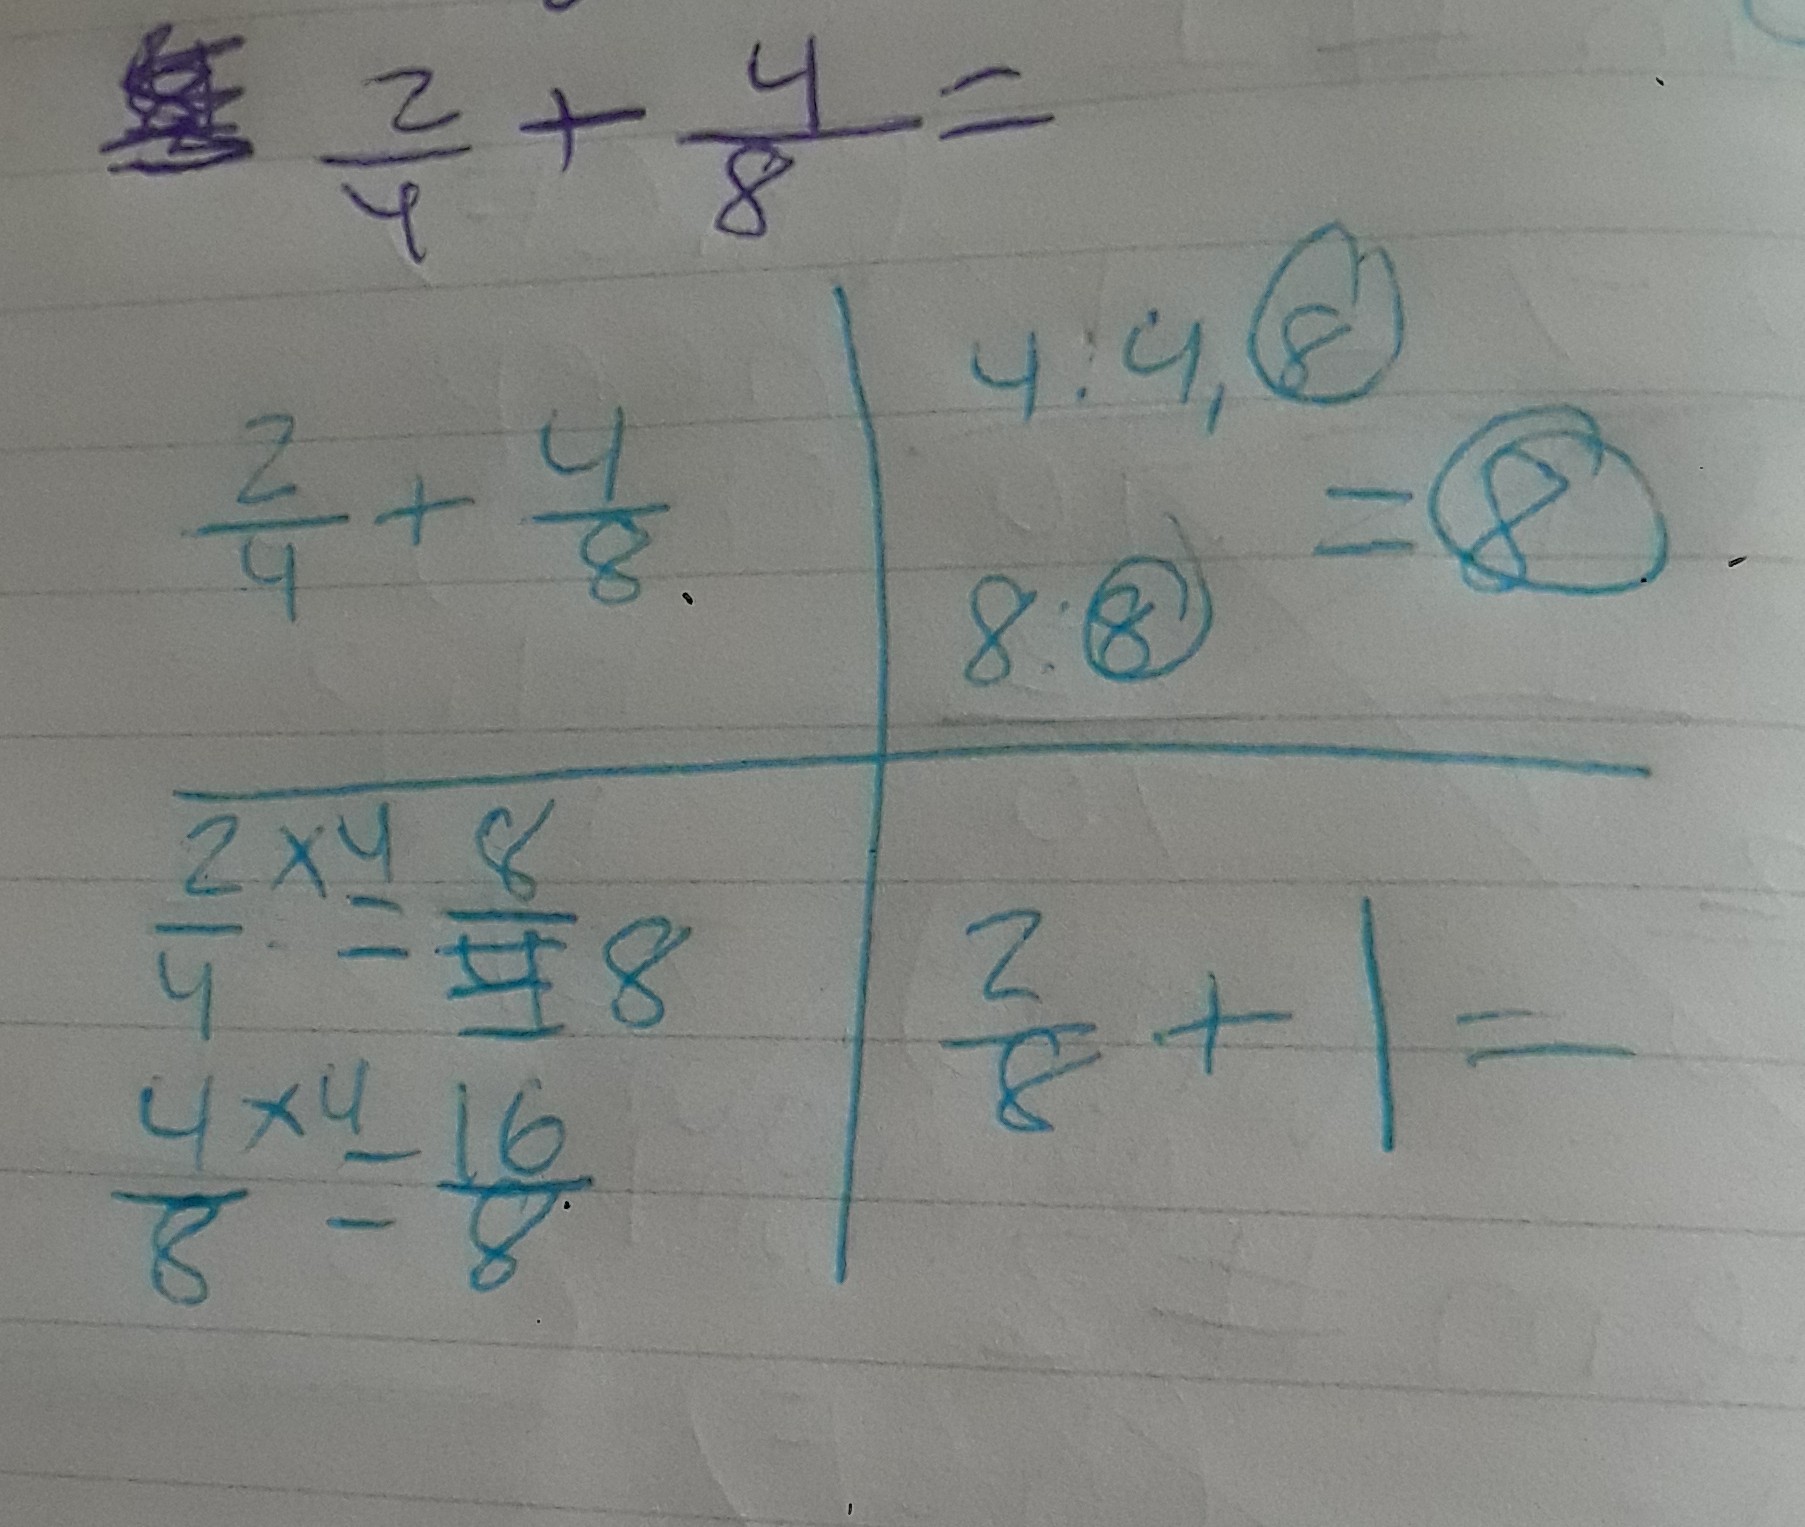 2/4 + 4/8 =
2/4 + 4/8
4: 4, 8
= 8
8: 8
2/4 ×4 = 8/8
4/8 ×4 = 16/8
2/8 + 1 =